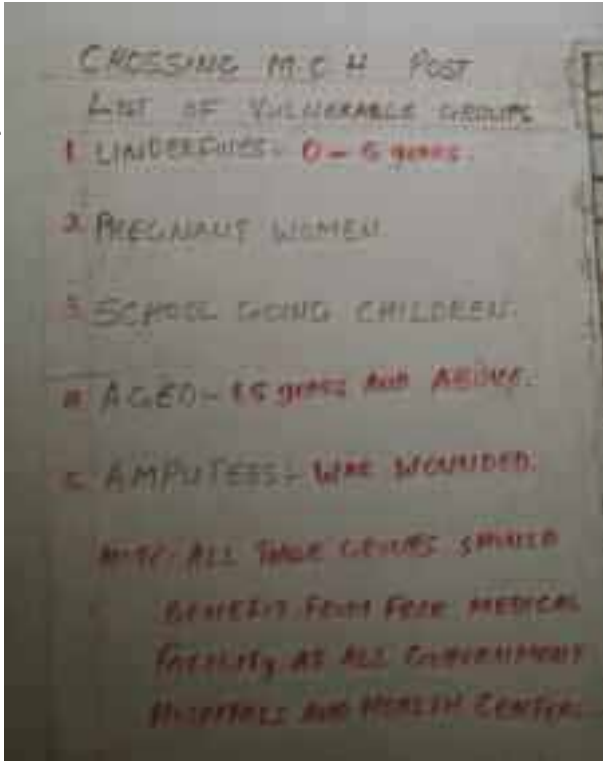 CROSSING M.C.H POST
LIST OF VULNERABLE GROUPS
1. UNDERFIVES - 0 - 5 years.
2. PREGNANT WOMEN
3. SCHOOL GOING CHILDREN.
AGED - 65 years AND ABOVE.
AMPUTEES - WAR WOUNDED.
ALL THESE GROUPS SHOULD
BENEFIT FROM FREE MEDICAL
FACILITY AT ALL GOVERNMENT
HOSPITALS AND HEALTH CENTERS